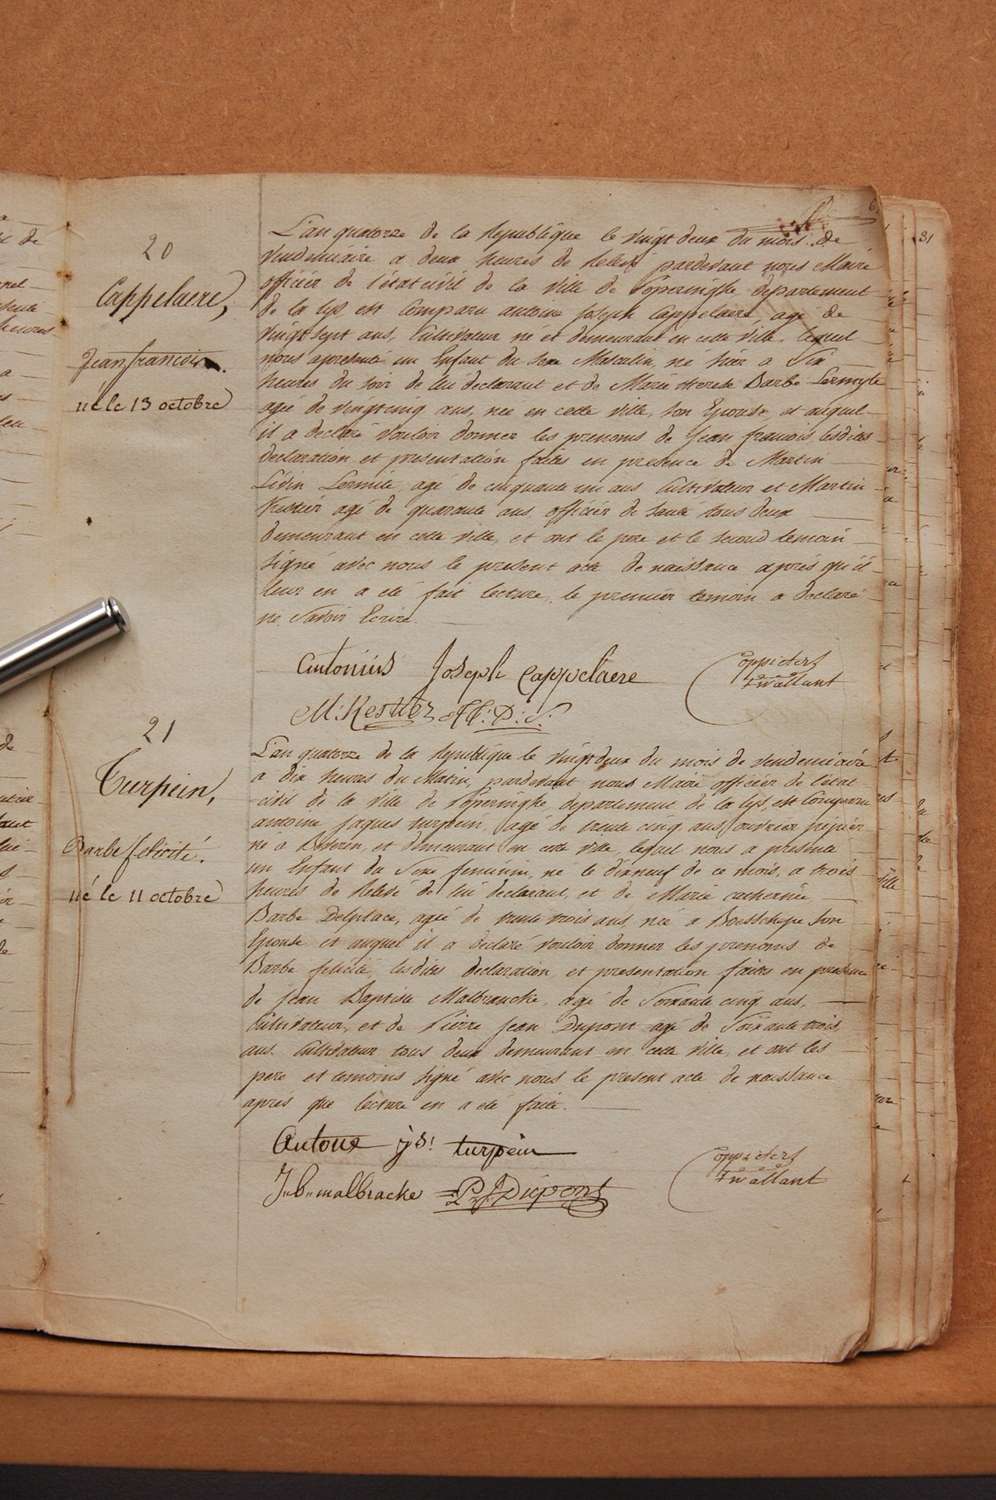 20
Cappelaere,
Jean francois.
né le 13 octobre
L'an quatorze de la Republique le vingt deux du mois de
Vendemiaire a deux heures de relevé pardevant nous Maire
officier de l'état civil de la ville de Poperinghe departement
de la lys est comparu antoine Joseph Cappelaere agé de
vingt sept ans, Cultivateur né et demeurant en cette ville, lequel
nous apresenté un Enfant du Sexe Masculin, né hier a Six
heures du soir de lui declarant et de Marie therese Barbe Lermyte
agée de vingtcinq ans, née en cette ville, Son Epouse, et auquel
il a declaré vouloir donner les prenoms de Jean francois, lesdites
declaration et presentation faites en presence de Martin
Lermite, agé de cinquante un ans Cultivateur et Martin
Kestier agé de quarante ans officier de Santé tous deux
demeurant en cette ville, et ont le pere et le Second temoin
Signé avec nous le present acte de naissance aprés qu'il
leur en a été fait lecture, le premier temoin a declaré
ne Savoir Ecrire.
Antonius Joseph Cappelaere
M: Kestier
21
Turpein,
Barbe felicité.
né le 11 octobre
L'an quatorze de la Republique le vingt deux du mois de vendemiaire
a dix heures du Matin, pardevant nous Maire officier de l'état
civil de la ville de Poperinghe departement de la lys, est Comparu
antoine Jaques turpein, agé de trente cinq ans, ouvrier
né a et demeurant en cette ville, lequel nous a presenté
un Enfant du Sexe feminin, né le dixneuf de ce mois, a trois
heures de relevé de lui declarant, et de Marie catherine
Barbe Delplace, agée de trente trois ans, née a Boesschepe Son
Epouse et auquel il a declaré vouloir donner les prenoms de
Barbe felicité, lesdites declaration et presentation faites en presence
de Jean Baptiste Malbrancke, agé de Soixante cinq ans,
Cultivateur, et de Pierre Jean Dupont agé de Soixante trois
ans Cultivateur tous deux demeurant en cette ville, et ont les
pere et temoins Signé avec nous le present acte de naissance
apres que lecture en a été faite.
Antone js: turpein
J.b. malbracke P J Dupont
31